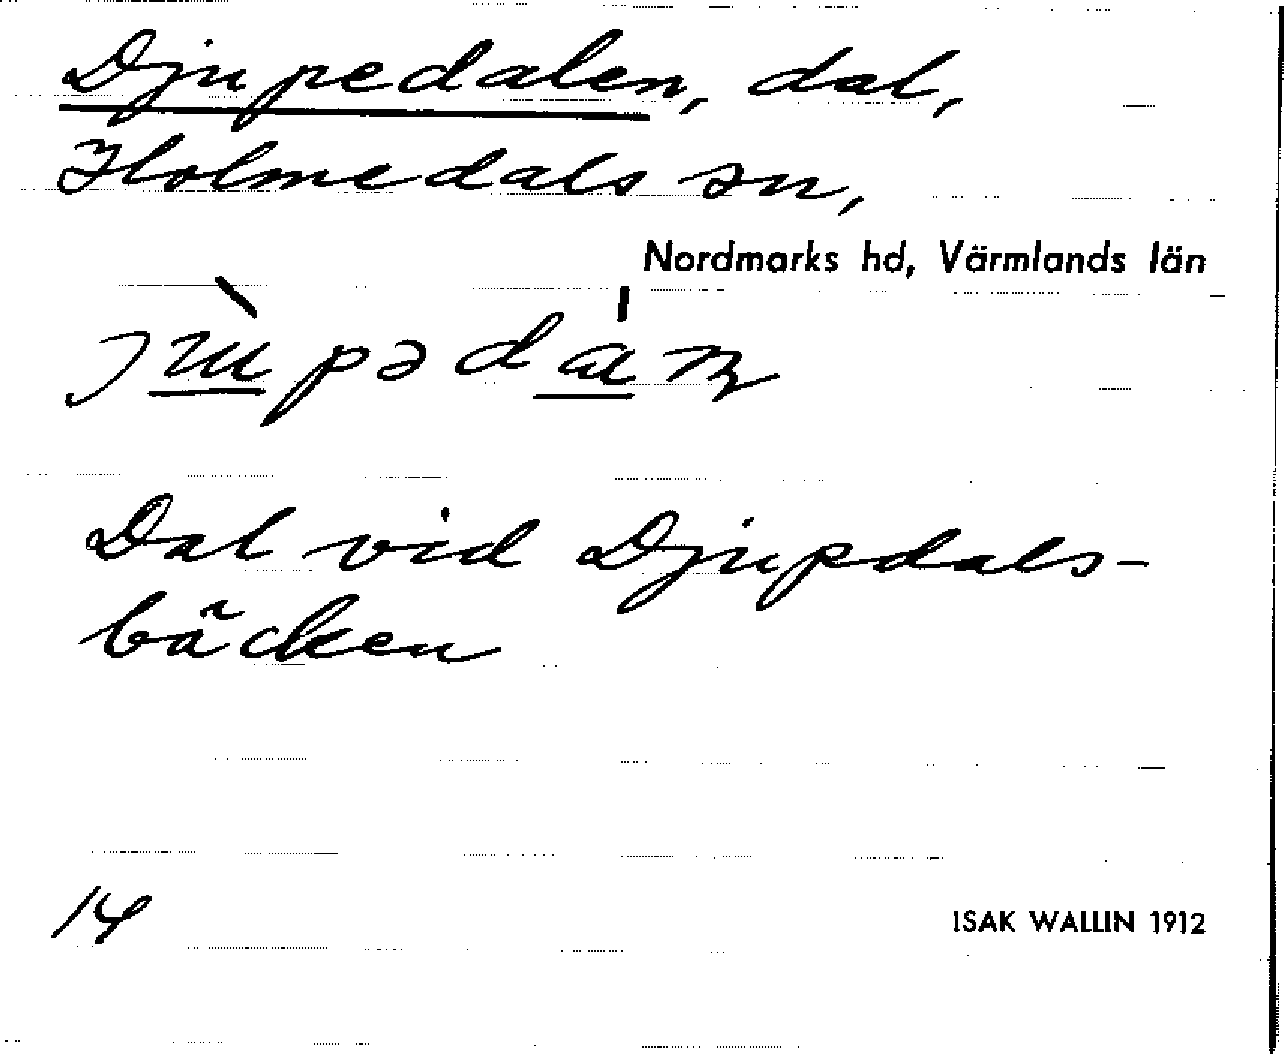 Djupedalen, dal,
Holmedals sn,
Nordmarks hd, Värmlands län
Dal vid Djupdals-
bäcken
14
ISAK WALLIN 1912